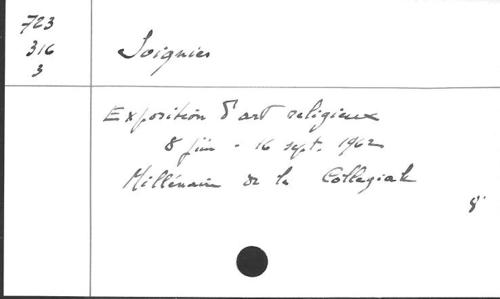 723
316
3
Soignies
Exposition d'art religieux
8 juin - 16 sept. 1962
Millénaire de la Collégiale
8°